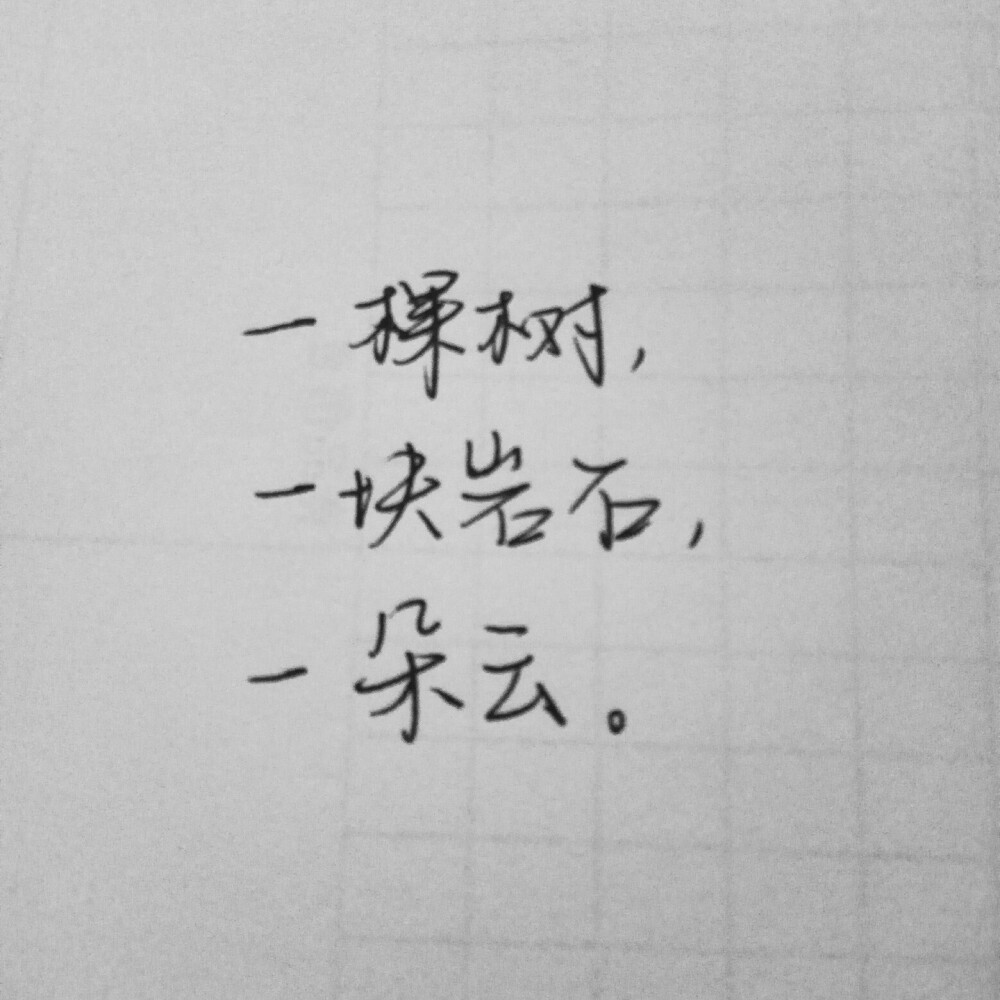 一棵树，
一块岩石，
一朵云。